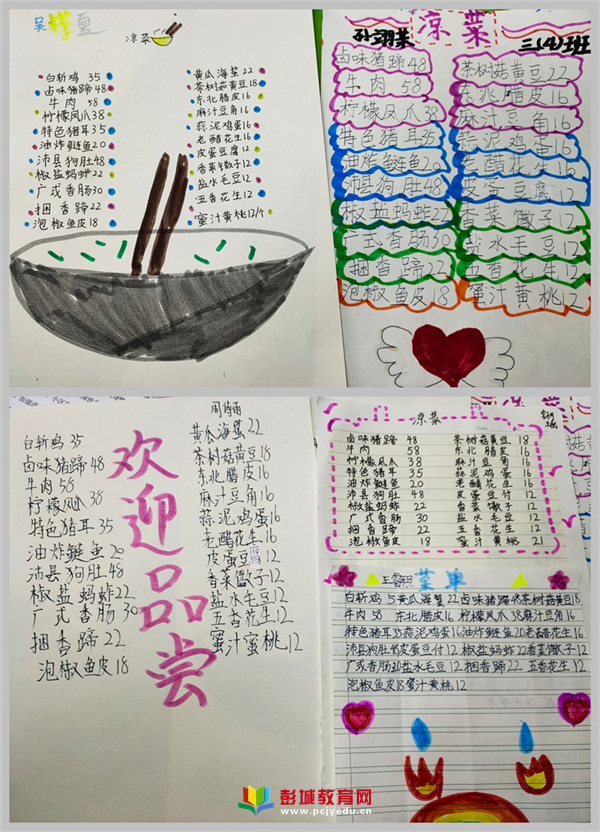 凉菜
白斩鸡 35
卤味猪蹄 48
牛肉 58
柠檬凤爪 38
特色猪耳 35
油炸鲢鱼 20
沛县狗肚 48
椒盐蚂蚱 22
广式香肠 30
捆香蹄 22
泡椒鱼皮 18
黄瓜海蜇 22
茶树菇黄豆 18
东北腊皮 16
麻汁豆角 16
蒜泥鸡蛋 16
老醋花生 16
皮蛋豆腐 12
香菜馓子 12
盐水毛豆 12
五香花生 12
蜜汁黄桃 12/个
凉菜
三(4)班
卤味猪蹄 48
牛肉 58
柠檬凤爪 38
特色猪耳 35
油炸鲢鱼 20
沛县狗肚 48
椒盐蚂蚱 22
广式香肠 30
捆香蹄 22
泡椒鱼皮 18
茶树菇黄豆 22
东北腊皮 16
麻汁豆角 16
蒜泥鸡蛋 16
老醋花生 16
皮蛋豆腐 12
香菜馓子 12
盐水毛豆 12
五香花生 12
蜜汁黄桃 12
白斩鸡 35
卤味猪蹄 48
牛肉 58
柠檬凤爪 38
特色猪耳 35
油炸鲢鱼 20
沛县狗肚 48
椒盐蚂蚱 22
广式香肠 30
捆香蹄 22
泡椒鱼皮 18
欢迎品尝
黄瓜海蜇 22
茶树菇黄豆 18
东北腊皮 16
麻汁豆角 16
蒜泥鸡蛋 16
老醋花生 16
皮蛋豆腐 12
香菜馓子 12
盐水毛豆 12
五香花生 12
蜜汁蜜桃 12
凉菜
卤味猪蹄 48 茶树菇黄豆 18
牛肉 58 东北腊皮 16
柠檬凤爪 38 麻汁豆角 16
特色猪耳 35 蒜泥鸡蛋 16
油炸鲢鱼 20 老醋花生 16
沛县狗肚 48 皮蛋豆付 12
椒盐蚂蚱 22 香菜馓子 12
广式香肠 30 盐水毛豆 12
捆香蹄 22 五香花生 12
泡椒鱼皮 18 蜜汁黄桃 21
菜单
白斩鸡 5 黄瓜海蜇 22 卤味猪蹄 48 茶树菇黄豆 18
牛肉 58 东北腊皮 16 柠檬凤爪 38 麻汁豆角 16
特色猪耳 35 蒜泥鸡蛋 16 油炸鲢鱼 20 老醋花生 16
沛县狗肚 48 皮蛋豆付 12 椒盐蚂蚱 22 香菜馓子 12
广式香肠 30 盐水毛豆 12 捆香蹄 22 五香花生 12
泡椒鱼皮 18 蜜汁黄桃 12
彭城教育网
www.pcjyedu.cn